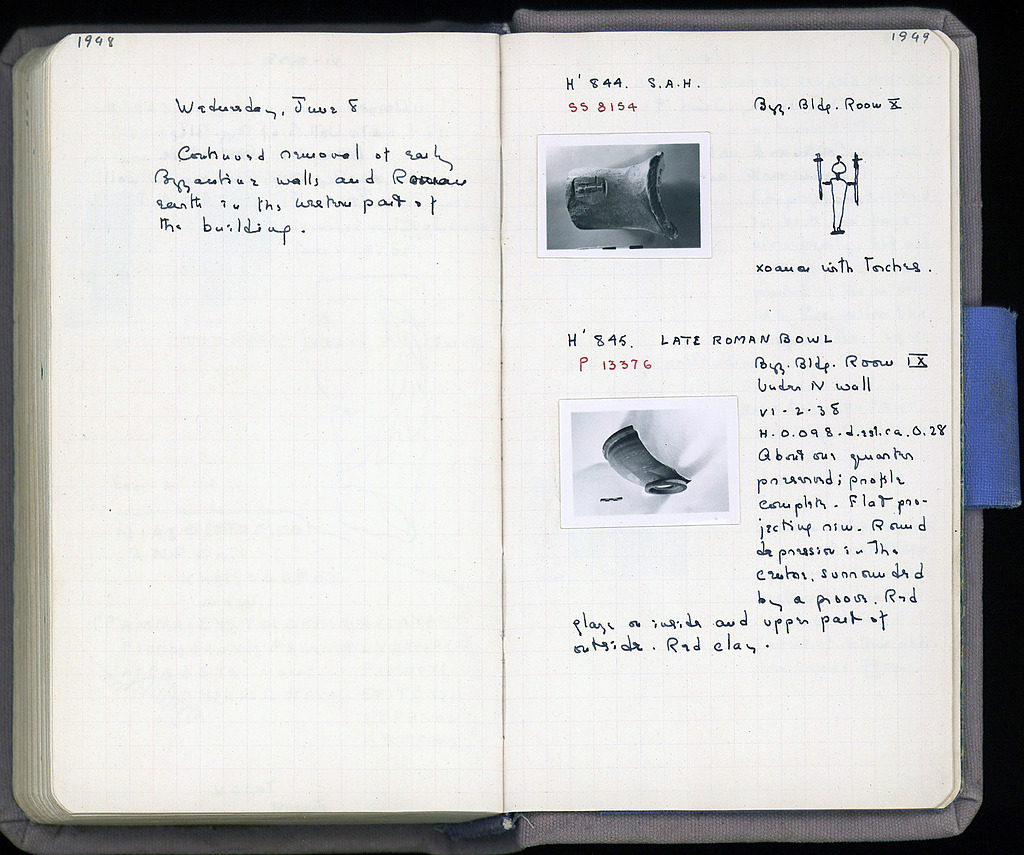 1948
Wednesday, June 8
Continued removal of early
Byzantine walls and Roman
earth in the western part of
the building.
1949
H' 844. S.A.H.
SS 8154
Byz. Bldg. Room X
xoanon with Torches.
H' 845. LATE ROMAN BOWL
P 13376
Byz. Bldg. Room IX
Under N wall
VI-2-38
H. 0.098. d. est. ca. 0.28
About one quarter
preserved; profile
complete. Flat pro-
jecting rim. Round
depression in the
center, surrounded
by a groove. Red
glaze on inside and upper part of
outside. Red clay.